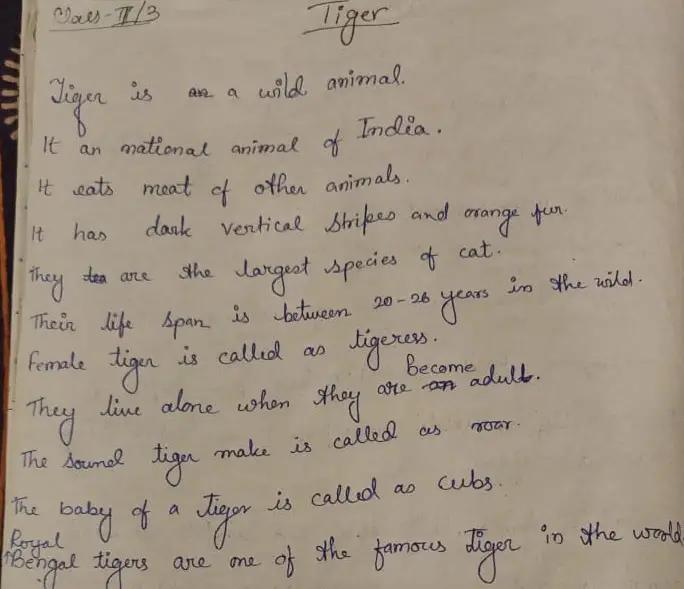 Class-II/3
Tiger
Tiger is a wild animal.
It an national animal of India.
It eats meat of other animals.
It has dark vertical stripes and orange fur.
They are the largest species of cat.
Their life span is between 20-26 years in the wild.
Female tiger is called as tigeress.
They live alone when they are become adult.
The sound tiger make is called as roar.
The baby of a tiger is called as cubs.
Royal
Bengal tigers are one of the famous tiger in the world